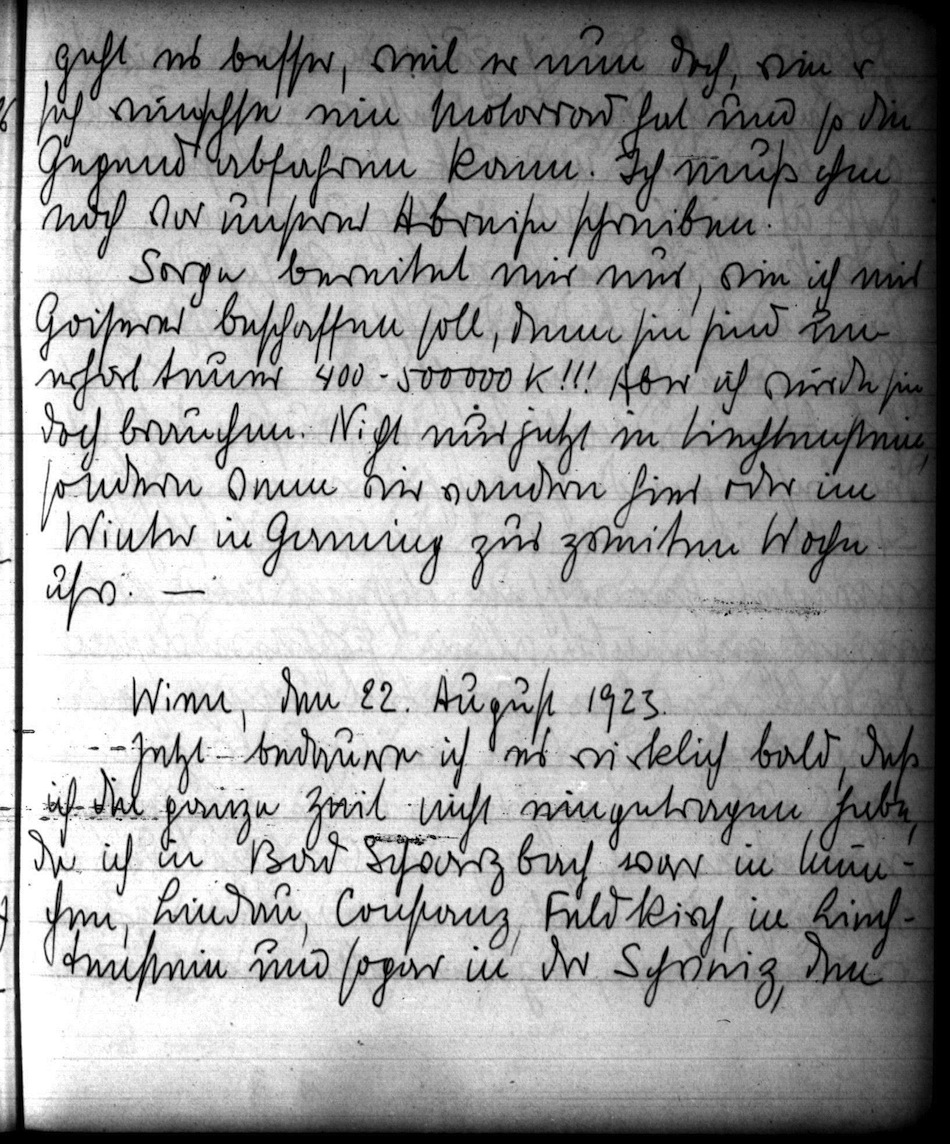 geht es besser, weil er nun doch, wie er
sich wünschte ein Motorrad hat und so die
Gegend abfahren kann. Ich muß ihm
noch vor unserer Abreise schreiben.
Sorge bereitet mir nur, wie ich mir
Goiserer beschaffen soll, denn sie sind un-
erhört teuer 400-500000 K!!! Aber ich würde sie
doch brauchen. Nicht nur jetzt in Liechtenstein,
sondern wenn wir wandern hier oder im
Winter in Gaming zur zweiten Woche
usw. —
Wien, den 22. August 1923.
Jetzt bedauere ich es wirklich bald, daß
ich die ganze Zeit nicht eingetragen habe,
da ich in Bad Schwarzbach war in Mün-
chen, Lindau, Constanz, Feldkirch, in Liech-
tenstein und sogar in der Schweiz, denn